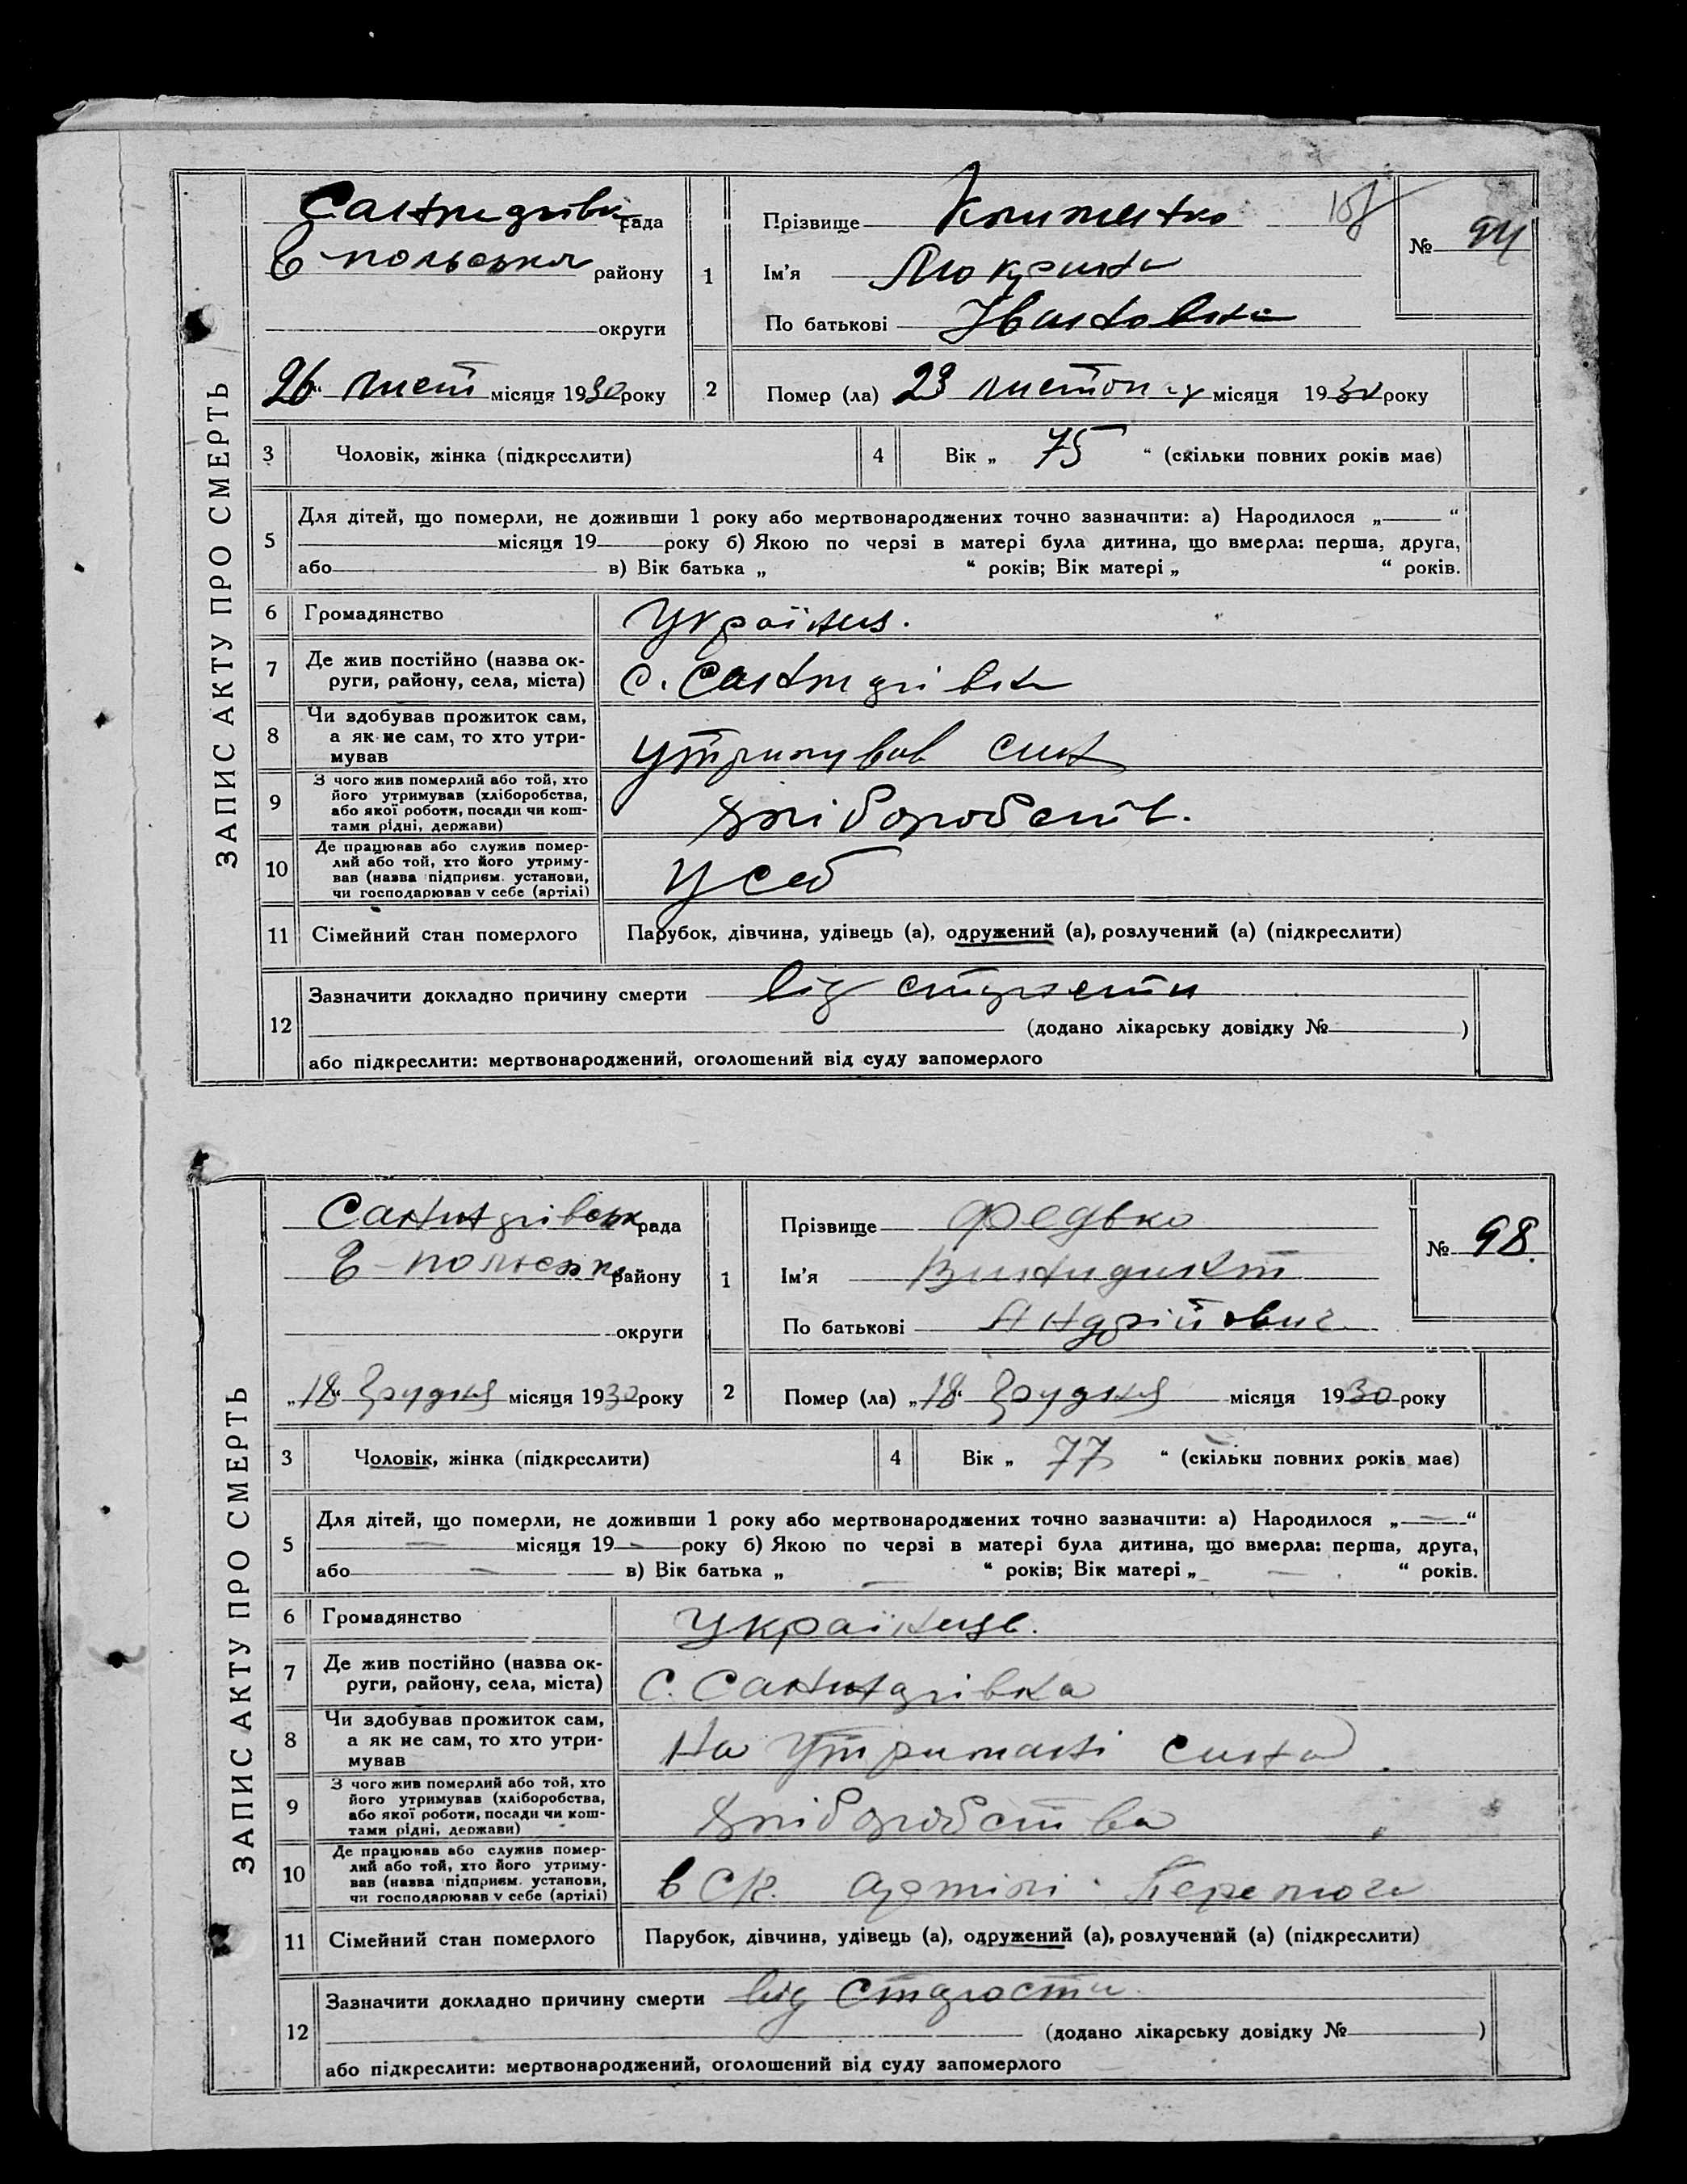 ЗАПИС АКТУ ПРО СМЕРТЬ
рада
Є-польська району
округи
26 лист місяця 1930 року
1
Прізвище Клименко
Ім'я Мокрина
По батькові Івановна
№ 94
2 Помер (ла) 23 листопад місяця 1930 року
3 Чоловік, жінка (підкреслити)
4 Вік „ 75 “ (скільки повних років має)
5 Для дітей, що померли, не доживши 1 року або мертвонароджених точно зазначити: а) Народилося „ “
місяця 19 року б) Якою по черзі в матері була дитина, що вмерла: перша, друга,
або в) Вік батька „ “ років; Вік матері „ “ років.
6 Громадянство Україн.
7 Де жив постійно (назва ок-
руги, району, села, міста) с.
8 Чи здобував прожиток сам,
а як не сам, то хто утри-
мував утримував син
9 З чого жив померлий або той, хто
його утримував (хліборобства,
або якої роботи, посади чи кош-
тами рідні, держави) хліборобств.
10 Де працював або служив помер-
лий або той, хто його утриму-
вав (назва підприєм. установи,
чи господарював у себе (артілі) у себ
11 Сімейний стан померлого Парубок, дівчина, удівець (а), одружений (а), розлучений (а) (підкреслити)
12 Зазначити докладно причину смерти від старости
(додано лікарську довідку № )
або підкреслити: мертвонароджений, оголошений від суду запомерлого
ЗАПИС АКТУ ПРО СМЕРТЬ
рада
Є-польськ району
округи
„18“ грудня місяця 1930 року
1
Прізвище Федько
Ім'я
По батькові Андрійович
№ 98.
2 Помер (ла) „18“ грудня місяця 1930 року
3 Чоловік, жінка (підкреслити)
4 Вік „ 77 “ (скільки повних років має)
5 Для дітей, що померли, не доживши 1 року або мертвонароджених точно зазначити: а) Народилося „ — “
— місяця 19 — року б) Якою по черзі в матері була дитина, що вмерла: перша, друга,
або — в) Вік батька „ — “ років; Вік матері „ — “ років.
6 Громадянство Українець.
7 Де жив постійно (назва ок-
руги, району, села, міста) с.
8 Чи здобував прожиток сам,
а як не сам, то хто утри-
мував На утриманні сина.
9 З чого жив померлий або той, хто
його утримував (хліборобства,
або якої роботи, посади чи кош-
тами рідні, держави) хліборобства
10 Де працював або служив помер-
лий або той, хто його утриму-
вав (назва підприєм. установи,
чи господарював у себе (артілі) в артілі Перемога
11 Сімейний стан померлого Парубок, дівчина, удівець (а), одружений (а), розлучений (а) (підкреслити)
12 Зазначити докладно причину смерти від старости
(додано лікарську довідку № )
або підкреслити: мертвонароджений, оголошений від суду запомерлого